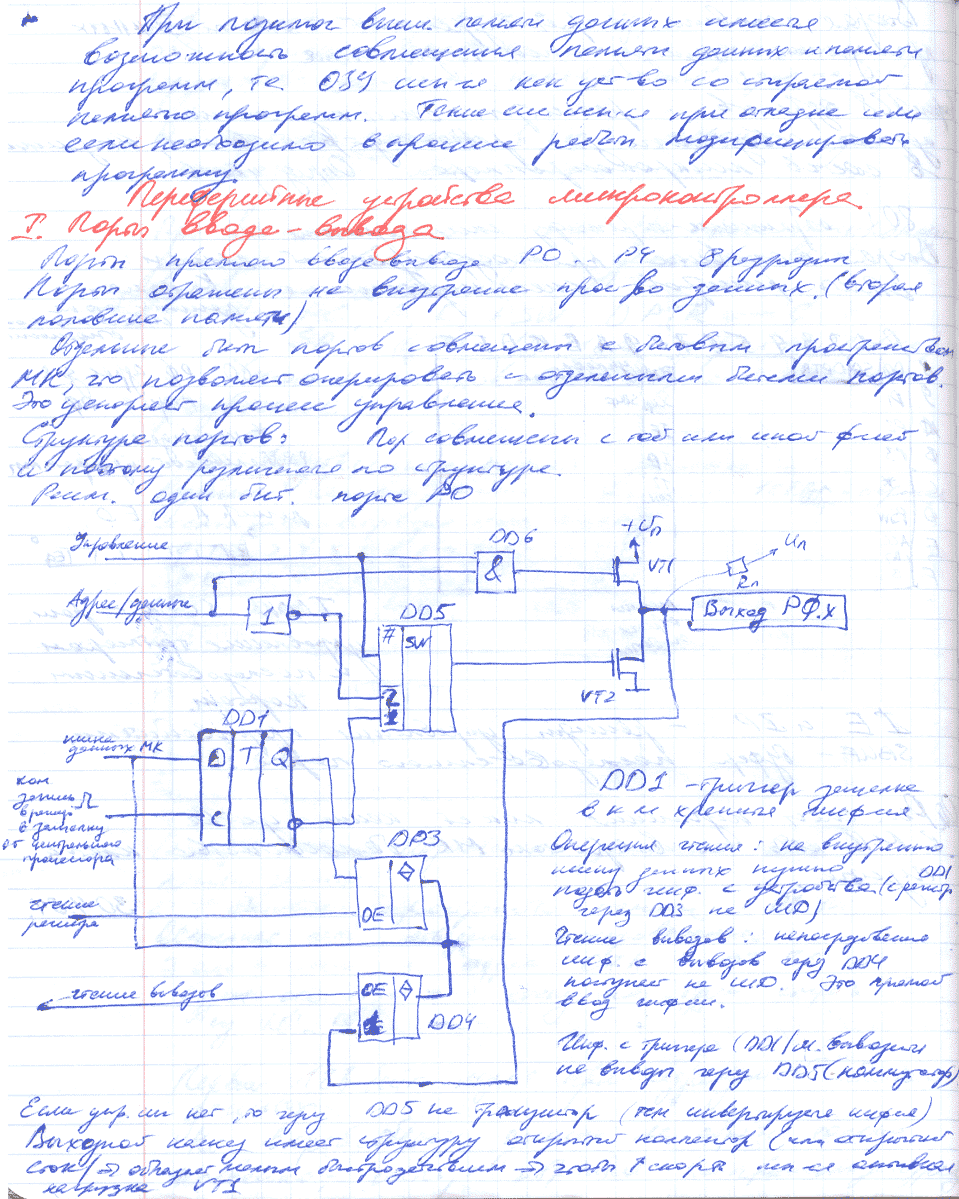 При помощи внеш. памяти данных имеется
возможность совмещения памяти данных и памяти
программ, т.е. ОЗУ исп-ся как ус-во со стираемой
памятью программ. Такие исп-ся при отладке или
если необходимо в процессе работы модифицировать
программу.
Периферийные устройства микроконтроллера.
I. Порты ввода-вывода
Порты прямого ввода-вывода P0 - P4 8 разрядн
Порты отражены на внутренне прос-во данных. (вторая
половине памяти)
Отдельные биты портов совмещены с битовым пространством
МК, что позволяет оперировать с отдельными битами портов.
Это ускоряет процесс управления.
Структура портов: совмещены с той или иной ф-ией
и поэтому различаются по структуре.
один бит. порта P0
Управление
DD6
+Uп
VT1
Uп
Rп
&
Адрес/данные
1
DD5
Выход P0.X
# SW
2
1
VT2
DD1
шина
данных МК
D T Q
C
ком
запись
в защелку
от центрального
процессора
DD1 - триггер защелка
в к-м хранится инф-ия
DD3
OE
чтение
регистра
Операция чтения: на внутренню
шину данных нужно
подать инф. с устройства (с регистр DD1
через DD3 на ШД)
Чтение выводов: непосредственно
инф. с выводов через DD4
поступает на ШД. Это прямой
ввод инф-ии.
чтение выводов
OE
1
DD4
Инф. с триггера (DD1) м. выводить
на выводы через DD5 (-коммутатор)
Если упр. нет, то через DD5 на транзистор (там инвертируется инф-ия)
Выходной каскад имеет структуру открытый коллектор (или открытый
сток) → обладает малым быстродействием → чтобы ↑ скорть исп-ся активная
нагрузка VT1